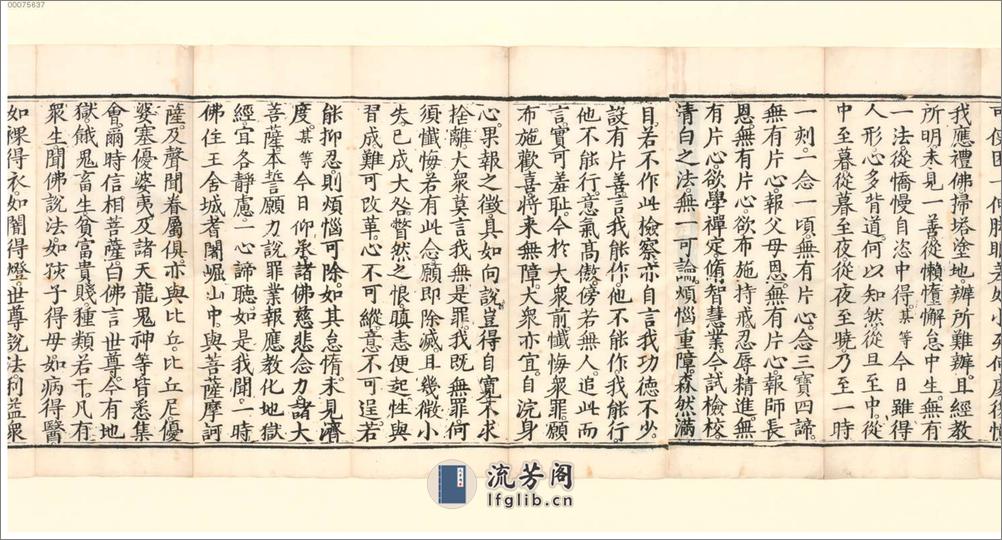 00075637
我應禮佛掃塔塗地。辦所難辦。且經教
所明。未見一善從懶惰懈怠中生。無有
一法從憍慢自恣中得。某等今日雖得
人形。心多背道。何以知然。從旦至中。從
中至暮。從暮至夜。從夜至曉。乃至一時
一刻。一念一頃。無有片心。念三寶四諦。
無有片心。報父母恩。無有片心。報師長
恩。無有片心。欲布施持戒忍辱精進。無
有片心。欲學禪定。脩智慧業。今試檢校
清白之法。無一可論。煩惱重障。森然滿
目。若不作此檢察。亦自言我功德不少。
設有片善。言我能作。他不能作。我能行。
他不能行。意氣高傲。傍若無人。追此而
言。實可羞恥。今於大衆前。懺悔衆罪。願
布施歡喜。將來無障。大衆亦宜。自浣身
心。果報之徵。具如向說。豈得自寬。不求
捨離。大衆莫言我無是罪。我旣無罪。何
須懺悔。若有此念。願即除滅。且幾微小
失。已成大咎。瞥然之恨。瞋恚便起。性與
習成。難可改革。心不可縱。意不可逞。若
能抑忍。則煩惱可除。如其怠惰。未見濟
度。某等今日仰承諸佛慈悲念力。諸大
菩薩本誓願力。說罪業報應教化地獄
經。宜各靜慮。一心諦聽。如是我聞。一時
佛住王舍城耆闍崛山中。與菩薩摩訶
薩。及聲聞眷屬俱。亦與比丘。比丘尼優
婆塞優婆夷。及諸天龍鬼神等皆悉集
會。爾時信相菩薩白佛言。世尊。今有地
獄餓鬼畜生貧富貴賤。種類若干。凡有
衆生。聞佛說法。如孩子得母。如病得醫
如裸得衣。如闇得燈。世尊說法。利益衆
流芳阁
lfglib.cn